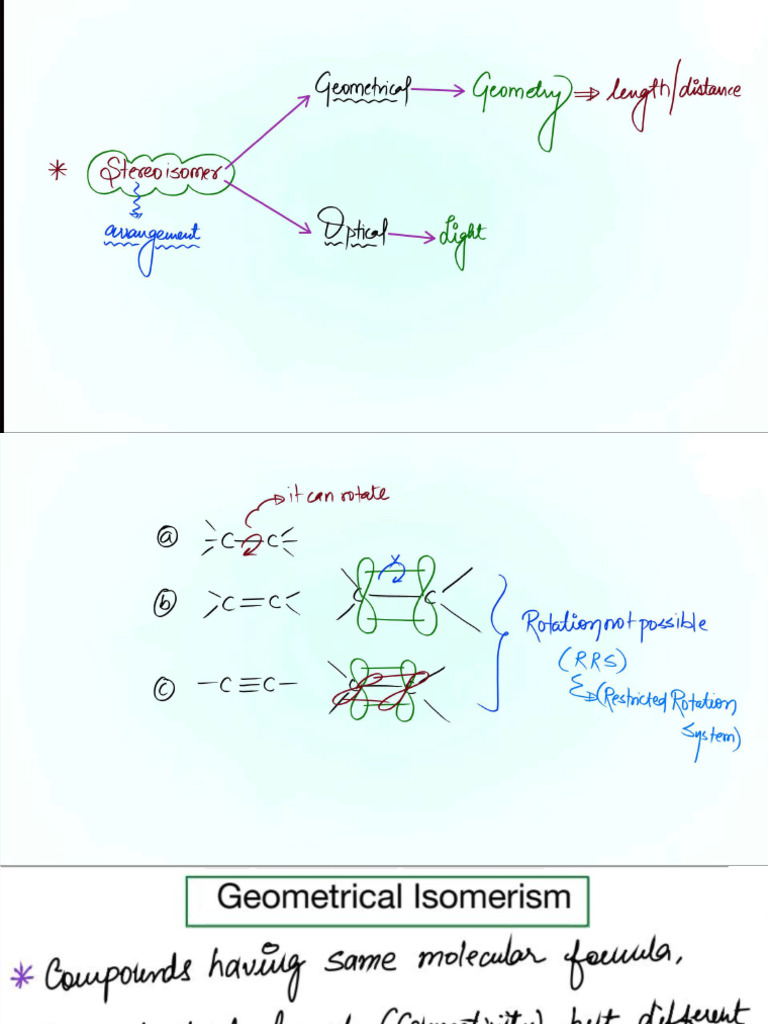 Geometrical → Geometry ⇒ length/distance
* Stereoisomer
arrangement
Optical → Light
it can rotate
ⓐ C–C
ⓑ C=C
C C
x
Rotation not possible
(RRS)
(Restricted Rotation
System)
ⓒ –C≡C–
Geometrical Isomerism
* Compounds having same molecular formula,
(Connectivity) but different